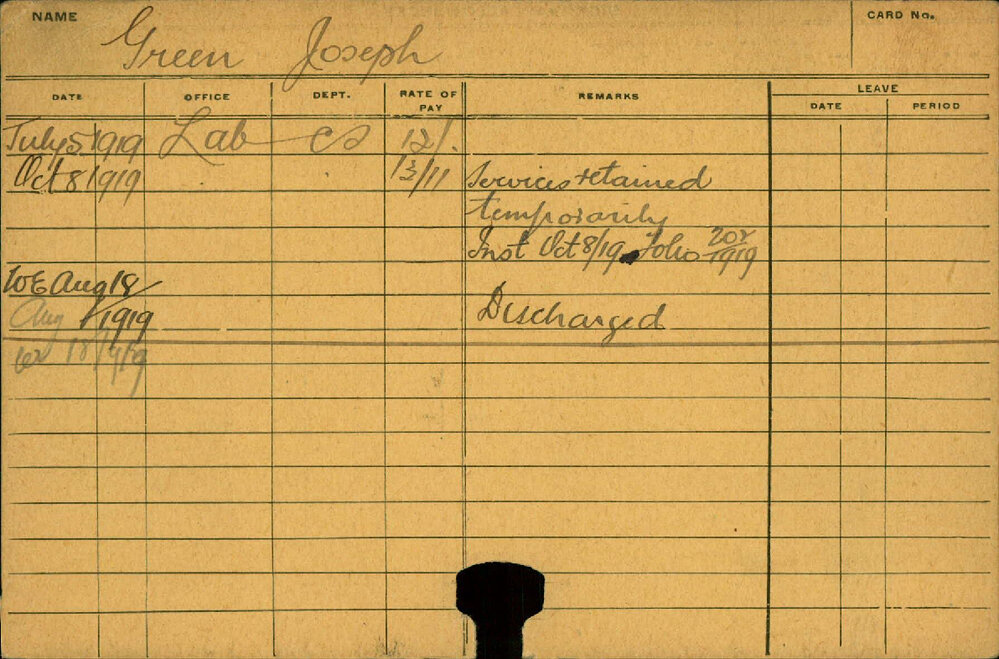 NAME Green Joseph CARD No.
DATE OFFICE DEPT. RATE OF PAY REMARKS LEAVE
DATE PERIOD
July 5 1919 Lab cs 12/.
Oct 8 1919 13/11 Services retained
temporarily
Inst Oct 8/19 Folio 202/1919
WE Aug 18/
Aug 1/1919 Discharged
18/1919